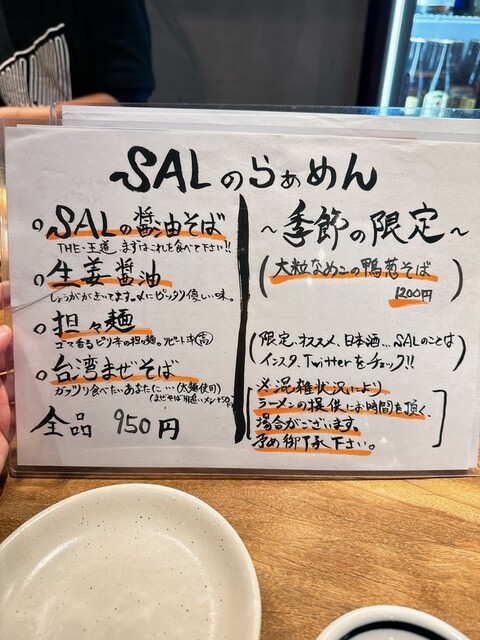 SALのらぁめん
SALの醤油そば
THE・王道 まずはこれを食べて下さい!!
生姜醤油
しょうががきいてます。〆にピッタリ優しい味。
担々麺
ゴマ香るピリ辛の担々麺。リピート率高
台湾まぜそば
ガッツリ食べたいあなたに…(太麺使用)
(まぜそば用追いメシ
全品 950円
~季節の限定~
大粒なめこの鴨葱そば
1200円
(限定、オススメ、日本酒...SALのことは
インスタ、Twitterをチェック!!)
※混雑状況により
ラーメンの提供にお時間を頂く
場合がございます。
予め御了承下さい。